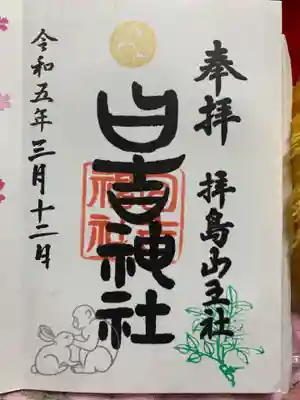 奉拝
拝島山王社
日吉神社
令和五年三月十二日